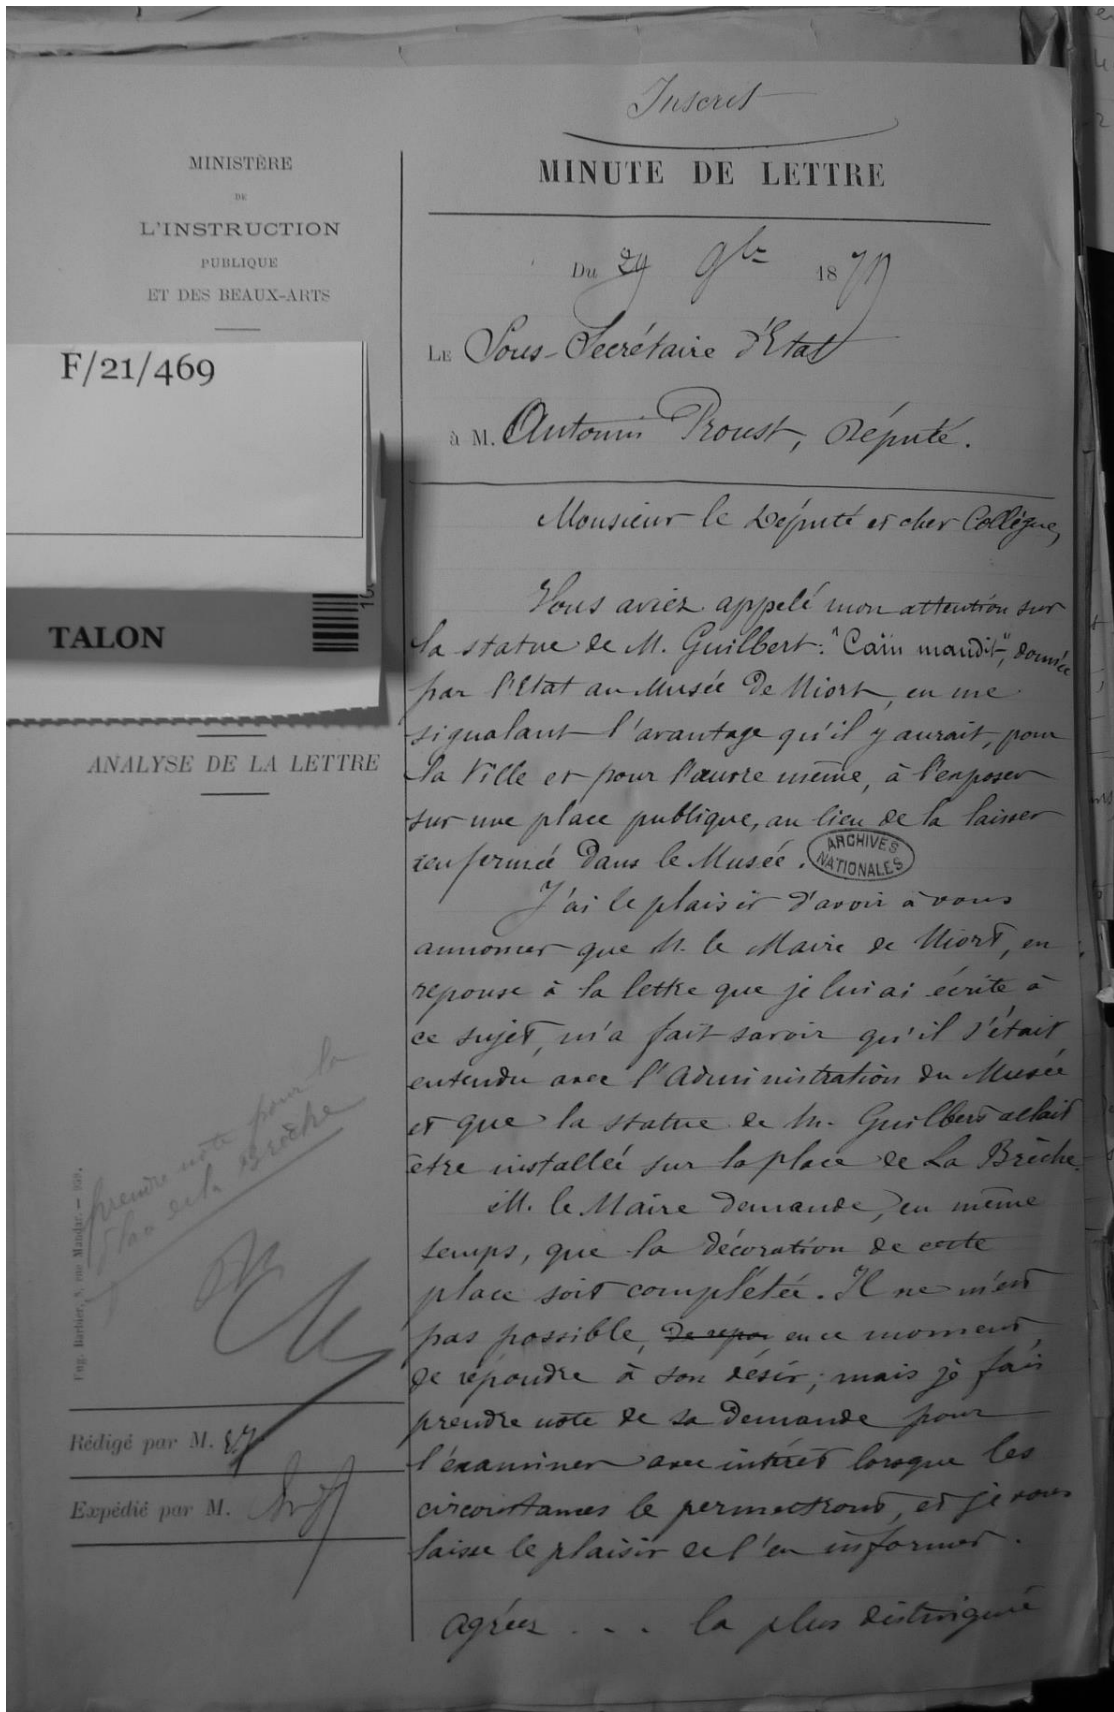 Inscrit
MINISTÈRE
DE
L'INSTRUCTION
PUBLIQUE
ET DES BEAUX-ARTS
F/21/469
TALON
ANALYSE DE LA LETTRE
prendre note pour la
Place de la Brèche
Eug. Barbier, 8, rue Mandar.
Rédigé par M.
Expédié par M.
MINUTE DE LETTRE
Du 29 9bre 1879
LE Sous-Secrétaire d'Etat
à M. Antonin Proust, Député.
Monsieur le Député et cher Collègue,
Vous aviez appelé mon attention sur
la statue de M. Guilbert: "Caïn maudit", donnée
par l'Etat au Musée de Niort, en me
signalant l'avantage qu'il y aurait, pour
la Ville et pour l'œuvre même, à l'exposer
sur une place publique, au lieu de la laisser
renfermée dans le Musée.
ARCHIVES
NATIONALES
J'ai le plaisir d'avoir à vous
annoncer que M. le Maire de Niort, en
reponse à la lettre que je lui ai écrite à
ce sujet, m'a fait savoir qu'il s'était
entendu avec l'Administration du Musée
et que la statue de M. Guilbert allait
être installée sur la place de La Brèche.
M. le Maire demande, en même
temps, que la décoration de cette
place soit complétée. Il ne m'est
pas possible, de repon en ce moment,
de répondre à son désir; mais je fais
prendre note de sa demande pour
l'examiner avec intérêt lorsque les
circonstances le permettront, et je vous
laisse le plaisir de l'en informer.
Agréez . . . la plus distinguée